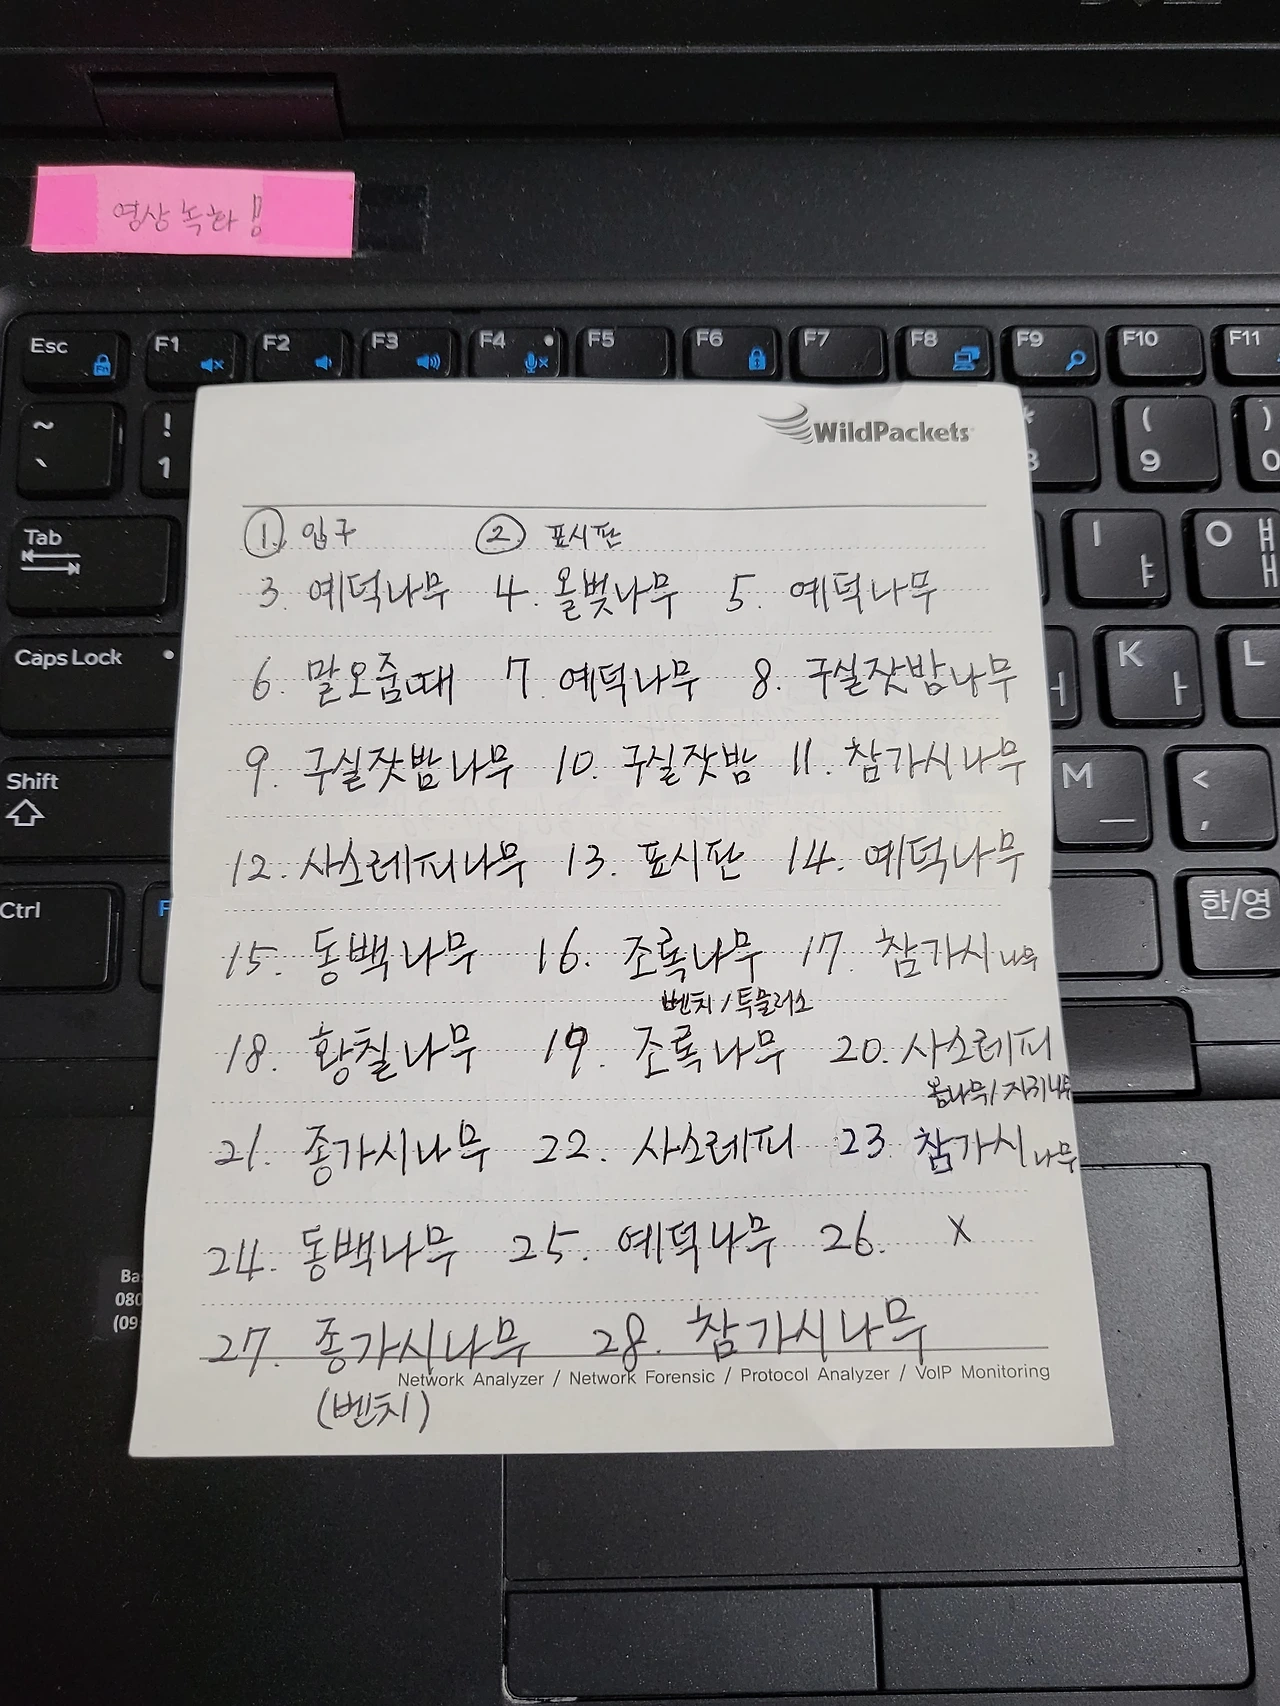 영상녹화!!
Esc F1 F2 F3 F4 F5 F6 F7 F8 F9 F10 F11
~ ` ! 1 * 8 ( 9 ) 0
WildPackets
Tab ㅣ ㅑ O ㅐ ㅒ
① 입구 ② 표시판
3. 예덕나무 4. 올벚나무 5. 예덕나무
Caps Lock K ㅏ L
6. 말오줌때 7. 예덕나무 8. 구실잣밤나무
9. 구실잣밤나무 10. 구실잣밤 11. 참가시나무
Shift M ㅡ < ,
12. 사스레피나무 13. 표시판 14. 예덕나무
Ctrl F 한/영
15. 동백나무 16. 조록나무 17. 참가시나무
벤치 /
18. 황칠나무 19. 조록나무 20. 사스레피
21. 종가시나무 22. 사스레피 23 참가시나무
24. 동백나무 25. 예덕나무 26. X
Ba
080
(09
27. 종가시나무 28. 참가시나무
Network Analyzer / Network Forensic / Protocol Analyzer / VoIP Monitoring
(벤치)